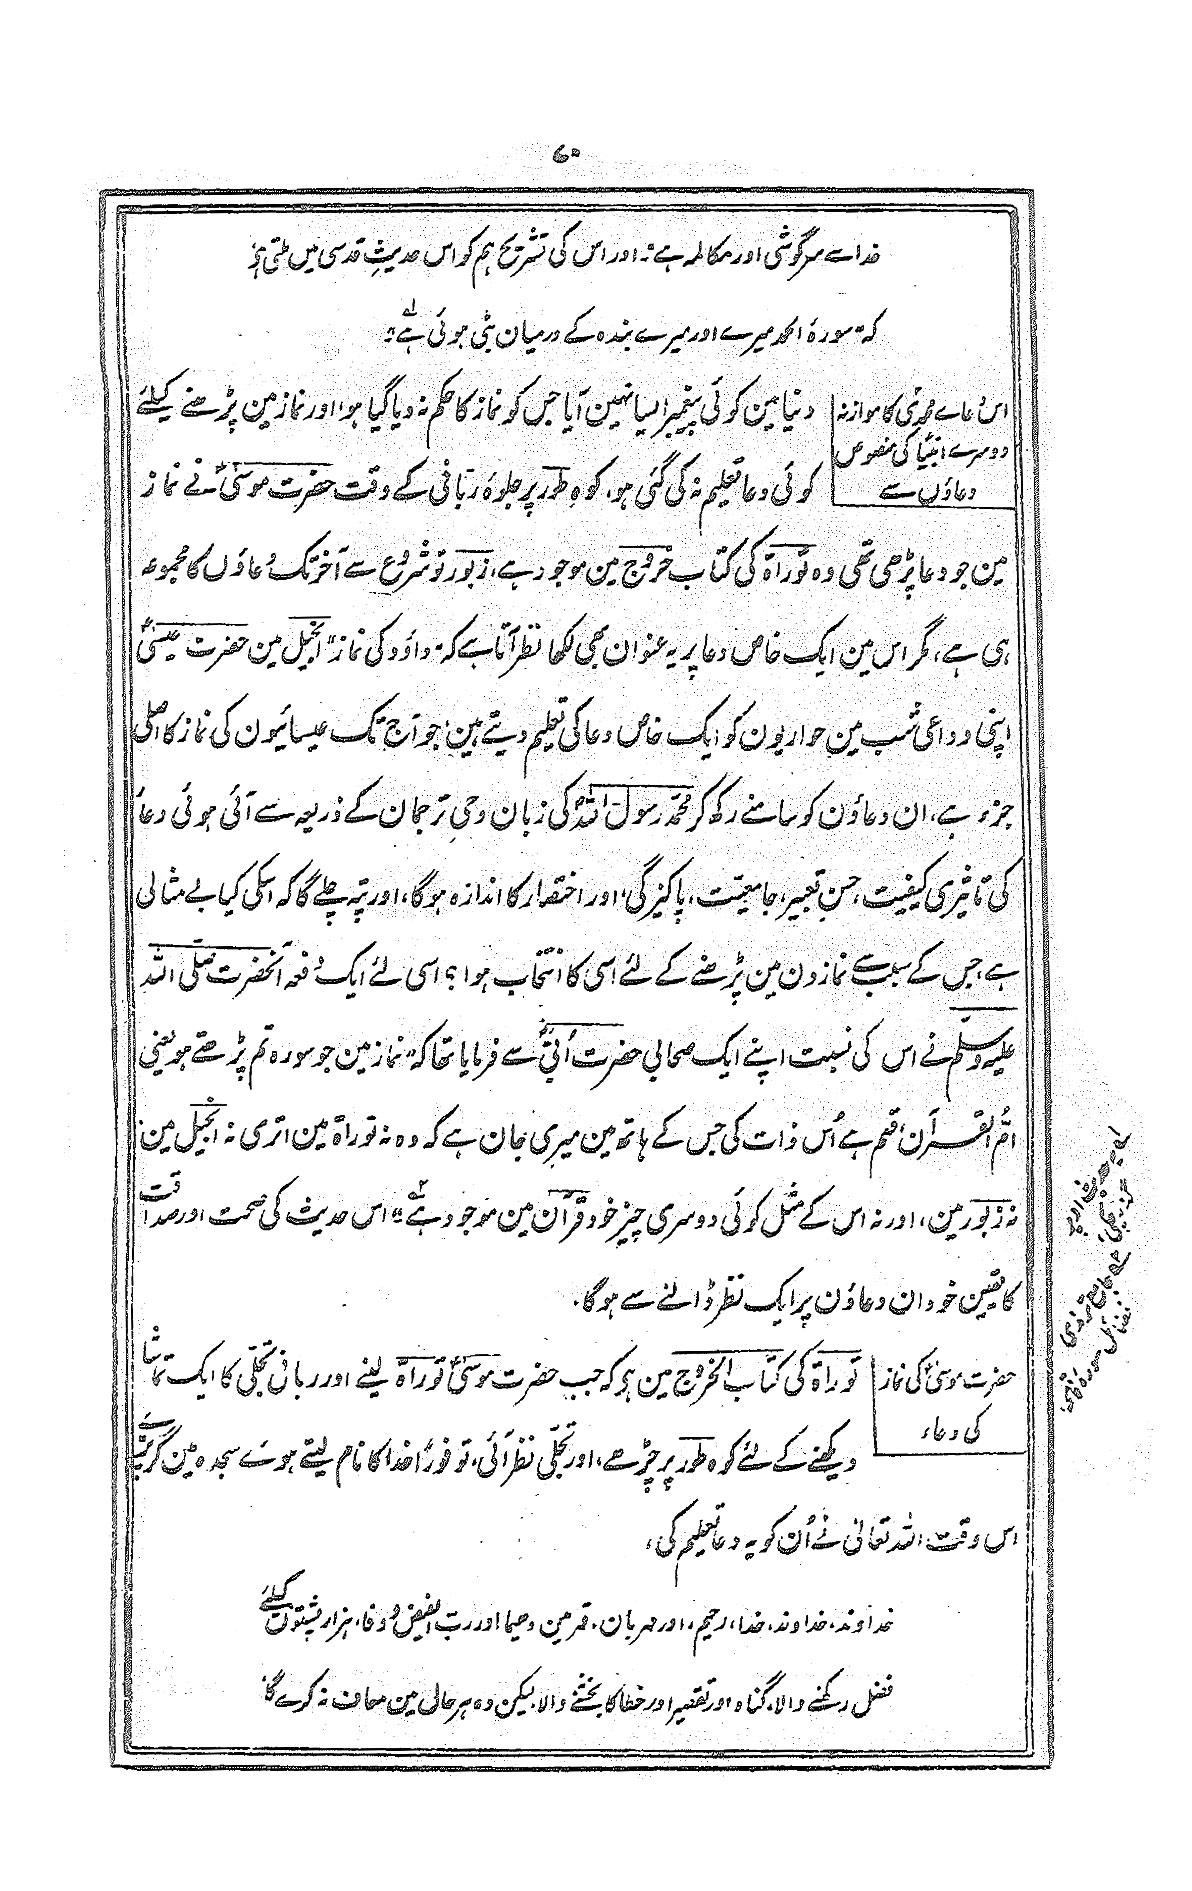 ۷۰
خدا سے سرگوشی اور مکالمہ ہے"۔ اور اس کی تشریح ہم کو اس حدیثِ قدسی میں ملتی ہے
کہ "سورۂ الحمد میرے اور میرے بندہ کے درمیان بٹی ہوئی ہے"
اس دعاے محمدی کا موازنہ
دوسرے انبیاؑ کی مخصوص
دعاؤں سے
دنیا مین کوئی پیغمبر ایسا نہین آیا جس کو نماز کا حکم نہ دیا گیا ہو، اور نماز مین پڑھنے کیلئے
کوئی دعا تعلیم نہ کی گئی ہو، کوہِ طور پر جلوۂ ربانی کے وقت حضرت موسیٰؑ نے نماز
مین جو دعا پڑھی تھی وہ توراۃ کی کتاب خروج مین موجود ہے، زبور تو شروع سے آخر تک دعاؤن کا مجموعہ
ہی ہے، مگر اس مین ایک خاص دعا پر یہ عنوان بھی لکھا نظر آتا ہے کہ "داؤد کی نماز" انجیل مین حضرت عیسیٰؑ
اپنی وداعی شب مین حواریون کو ایک خاص دعا کی تعلیم دیتے ہین، جو آج تک عیسائیون کی نماز کا اصلی
جزء ہے، ان دعاؤن کو سامنے رکھ کر محمد رسول اللہؐ کی زبان وحی ترجمان کے ذریعہ سے آئی ہوئی دعا
کی تاثیری کیفیت، حسنِ تعبیر، جامعیت، پاکیزگی، اور اختصار کا اندازہ ہوگا، اور پتہ چلے گا کہ اسکی کیا بے مثالی
ہے، جس کے سبب سے نمازون مین پڑھنے کے لئے اسی کا انتخاب ہوا؟ اسی لئے ایک دفعہ آنحضرت صلی اللہ
علیہ وسلم نے اس کی نسبت اپنے ایک صحابی حضرت اُبیؓ سے فرمایا تھا کہ "نماز مین جو سورہ تم پڑھتے ہو یعنی
ام القرآن، قسم ہے اُس ذات کی جس کے ہاتھ مین میری جان ہے کہ وہ نہ توراۃ مین اتری نہ انجیل مین
نہ زبور مین، اور نہ اس کے مثل کوئی دوسری چیز خود قرآن مین موجود ہے"۲ اس حدیث کی صحت اور صداقت
کا یقین خود ان دعاؤن پر ایک نظر ڈالنے سے ہوگا۔
حضرت موسیٰؑ کی نماز
کی دعاء
توراۃ کی کتاب الخروج مین ہے کہ جب حضرت موسیٰؑ توراۃ لینے اور ربانی تجلی کا ایک تماشا
دیکھنے کے لئے کوہ طور پر چڑھے، اور تجلی نظر آئی، تو فوراً خدا کا نام لیتے ہوئے سجدہ مین گر پڑے
اس وقت اللہ تعالیٰ نے اُن کو یہ دعا تعلیم کی،
خداوند، خداوند، خدا، رحیم، اور مہربان، قہر مین دھیما اور رب الفیض و وفا، ہزار پشتون کیلئے
فضل رکھنے والا، گناہ اور تقصیر اور خطا کا بخشنے والا، لیکن وہ ہر حال مین معاف نہ کرے گا،
۲ جامع ترمذی
فضائل سورۂ فاتحہ